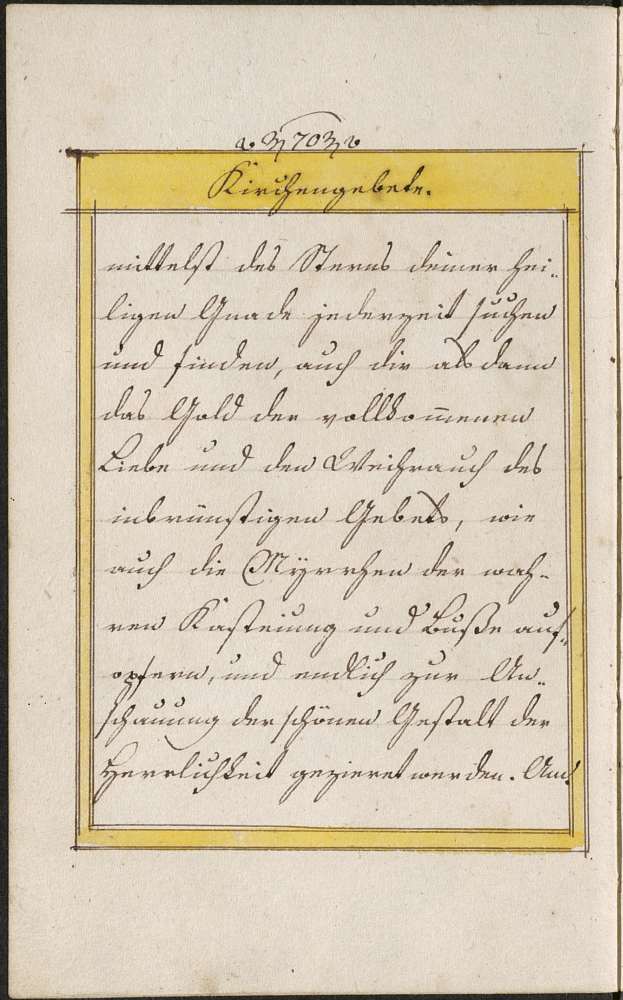 70
Kirchengebete.
mittelst des Sterns deiner hei-
ligen Gnade jederzeit suchen
und finden, auch dir alsdann
das Gold der vollkom̅enen
Liebe und den Weihrauch des
inbrünstigen Gebets, wie
auch die Myrrhen der wah-
ren Kasteiung und Buße auf-
opfern, und endlich zur An-
schauung der schönen Gestalt der
Herrlichkeit gezieret werden. Am.